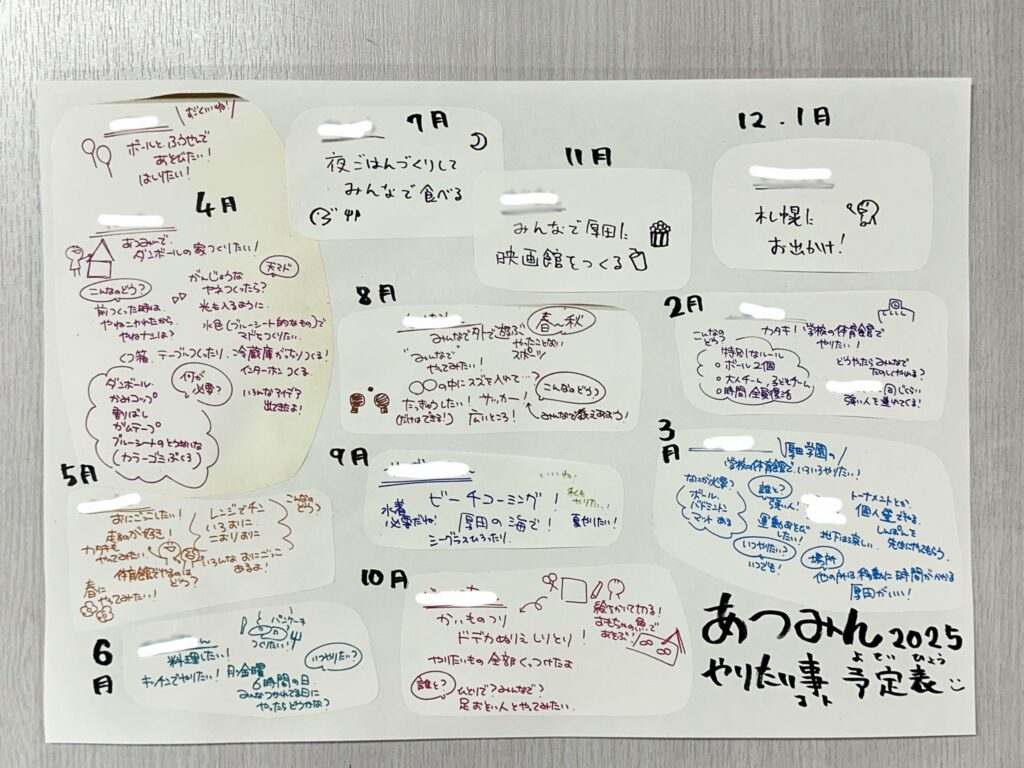 すごくいいね!
ボールと、ふうせんで
あそびたい!
はしりたい!
4月
あつみんで、
ダンボールの家つくりたい!
こんなのどう?
前つくった時は、
やねこわれたから、
やねナシは?
がんじょうな
ヤネつくったら?
天マド
光も入るように
水色(ブルーシート的なもの)で
マドをつくりたい。
くつ箱、テーブルつくったり、冷蔵庫がっちりつくる!
インターホンつくる
何が
必要?
いろんなアイデア
出てきたよ!
ダンボール
かみコップ
割りばし
ガムテープ
ブルーシートのとうめいな
(カラーゴミぶくろ)
5月
おにごっこしたい!
走るのが好き!
カタキも
やってみたい
体育館でやるのは
どう?
春に
やってみたい!
こんなの
どう?
レンジでチン
いろおに
こおりおに
いろんなおにごっこ
あるよ!
6月
料理したい!
キッチンでやりたい!
パンケーキ
つくりたい!
いつやりたい?
月・金曜
6時間の日
みんなつかれてる日に
やったらどうかな?
7月
夜ごはんづくりして
みんなで食べる
8月
みんなで外で遊ぶ
春〜秋
やったことない
スポーツ
みんなで
やってみたい!
〇〇の中にスズを入れて…?
たっきゅうしたい!サッカー!
(だけはできる!)広いところ!
こんなのどう?
みんなで教えあおう!
9月
ビーチコーミング!
水着
必要だね!
厚田の海で!
シーグラスひろったり、
いいね!
私も
やりたい!
夏やりたい!
10月
かいものつり
ドデカぬりえ しりとり!
やりたいもの全部くっつけたよ
誰と?
ひとりで?みんなで?
足おそい人とやってみたい
絵をかいて切る!
おもちゃの魚で
あそぶ!
11月
みんなで厚田に
映画館をつくる
12.1月
札幌に
お出かけ!
2月
カタキ!学校の体育館で
やりたい!
こんなの
どう?
特別なルール
ボール2個
大人チーム、子どもチーム
時間全員復活
どうやったらみんなで
たのしくやれる?
同じくらい
強い人を連れてくる!
3月
厚田学園の
学校の体育館で、いろいろやりたい!
なにが必要?
ボール
バドミントン
マット ある
誰と?
強い人!
運動あそび
したい!
いつやりたい?
いつでも!
トーナメントとか、
個人塁でやる
しんぱんを
先生にやってもらう、
地下は涼しい
場所
他の所は移動に時間がかかる
厚田がいい!
あつみん2025
やりたい事 予定表
こと よてい ひょう